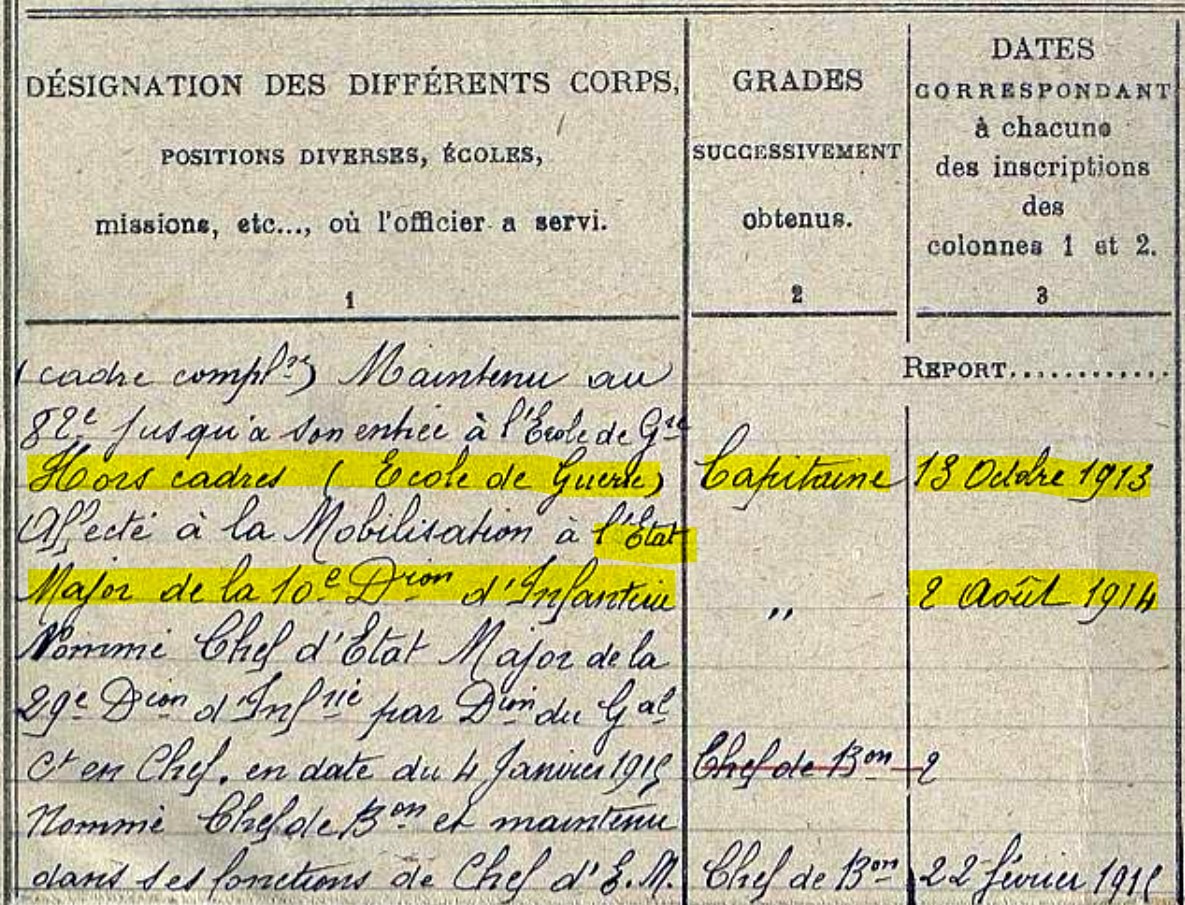 DÉSIGNATION DES DIFFÉRENTS CORPS,
POSITIONS DIVERSES, ÉCOLES,
missions, etc..., où l'officier a servi.
1
GRADES
SUCCESSIVEMENT
obtenus.
2
DATES
CORRESPONDANT
à chacune
des inscriptions
des
colonnes 1 et 2.
3
REPORT............
(cadre complre) Maintenu au
82e jusqu'à son entrée à l'Ecole de Gre
Hors cadres (Ecole de Guerre) Capitaine 13 Octobre 1913
Affecté à la Mobilisation à l'Etat
Major de la 10e Dion d'Infanterie " 2 Août 1914
Nommé Chef d'Etat Major de la
29e Dion d'Infrie par Dion du Gal
Ct en Chef. en date du 4 Janvier 1915 Chef de Bon 2
Nommé Chef de Bon et maintenu
dans ses fonctions de Chef d'E.M. Chef de Bon 22 février 1915